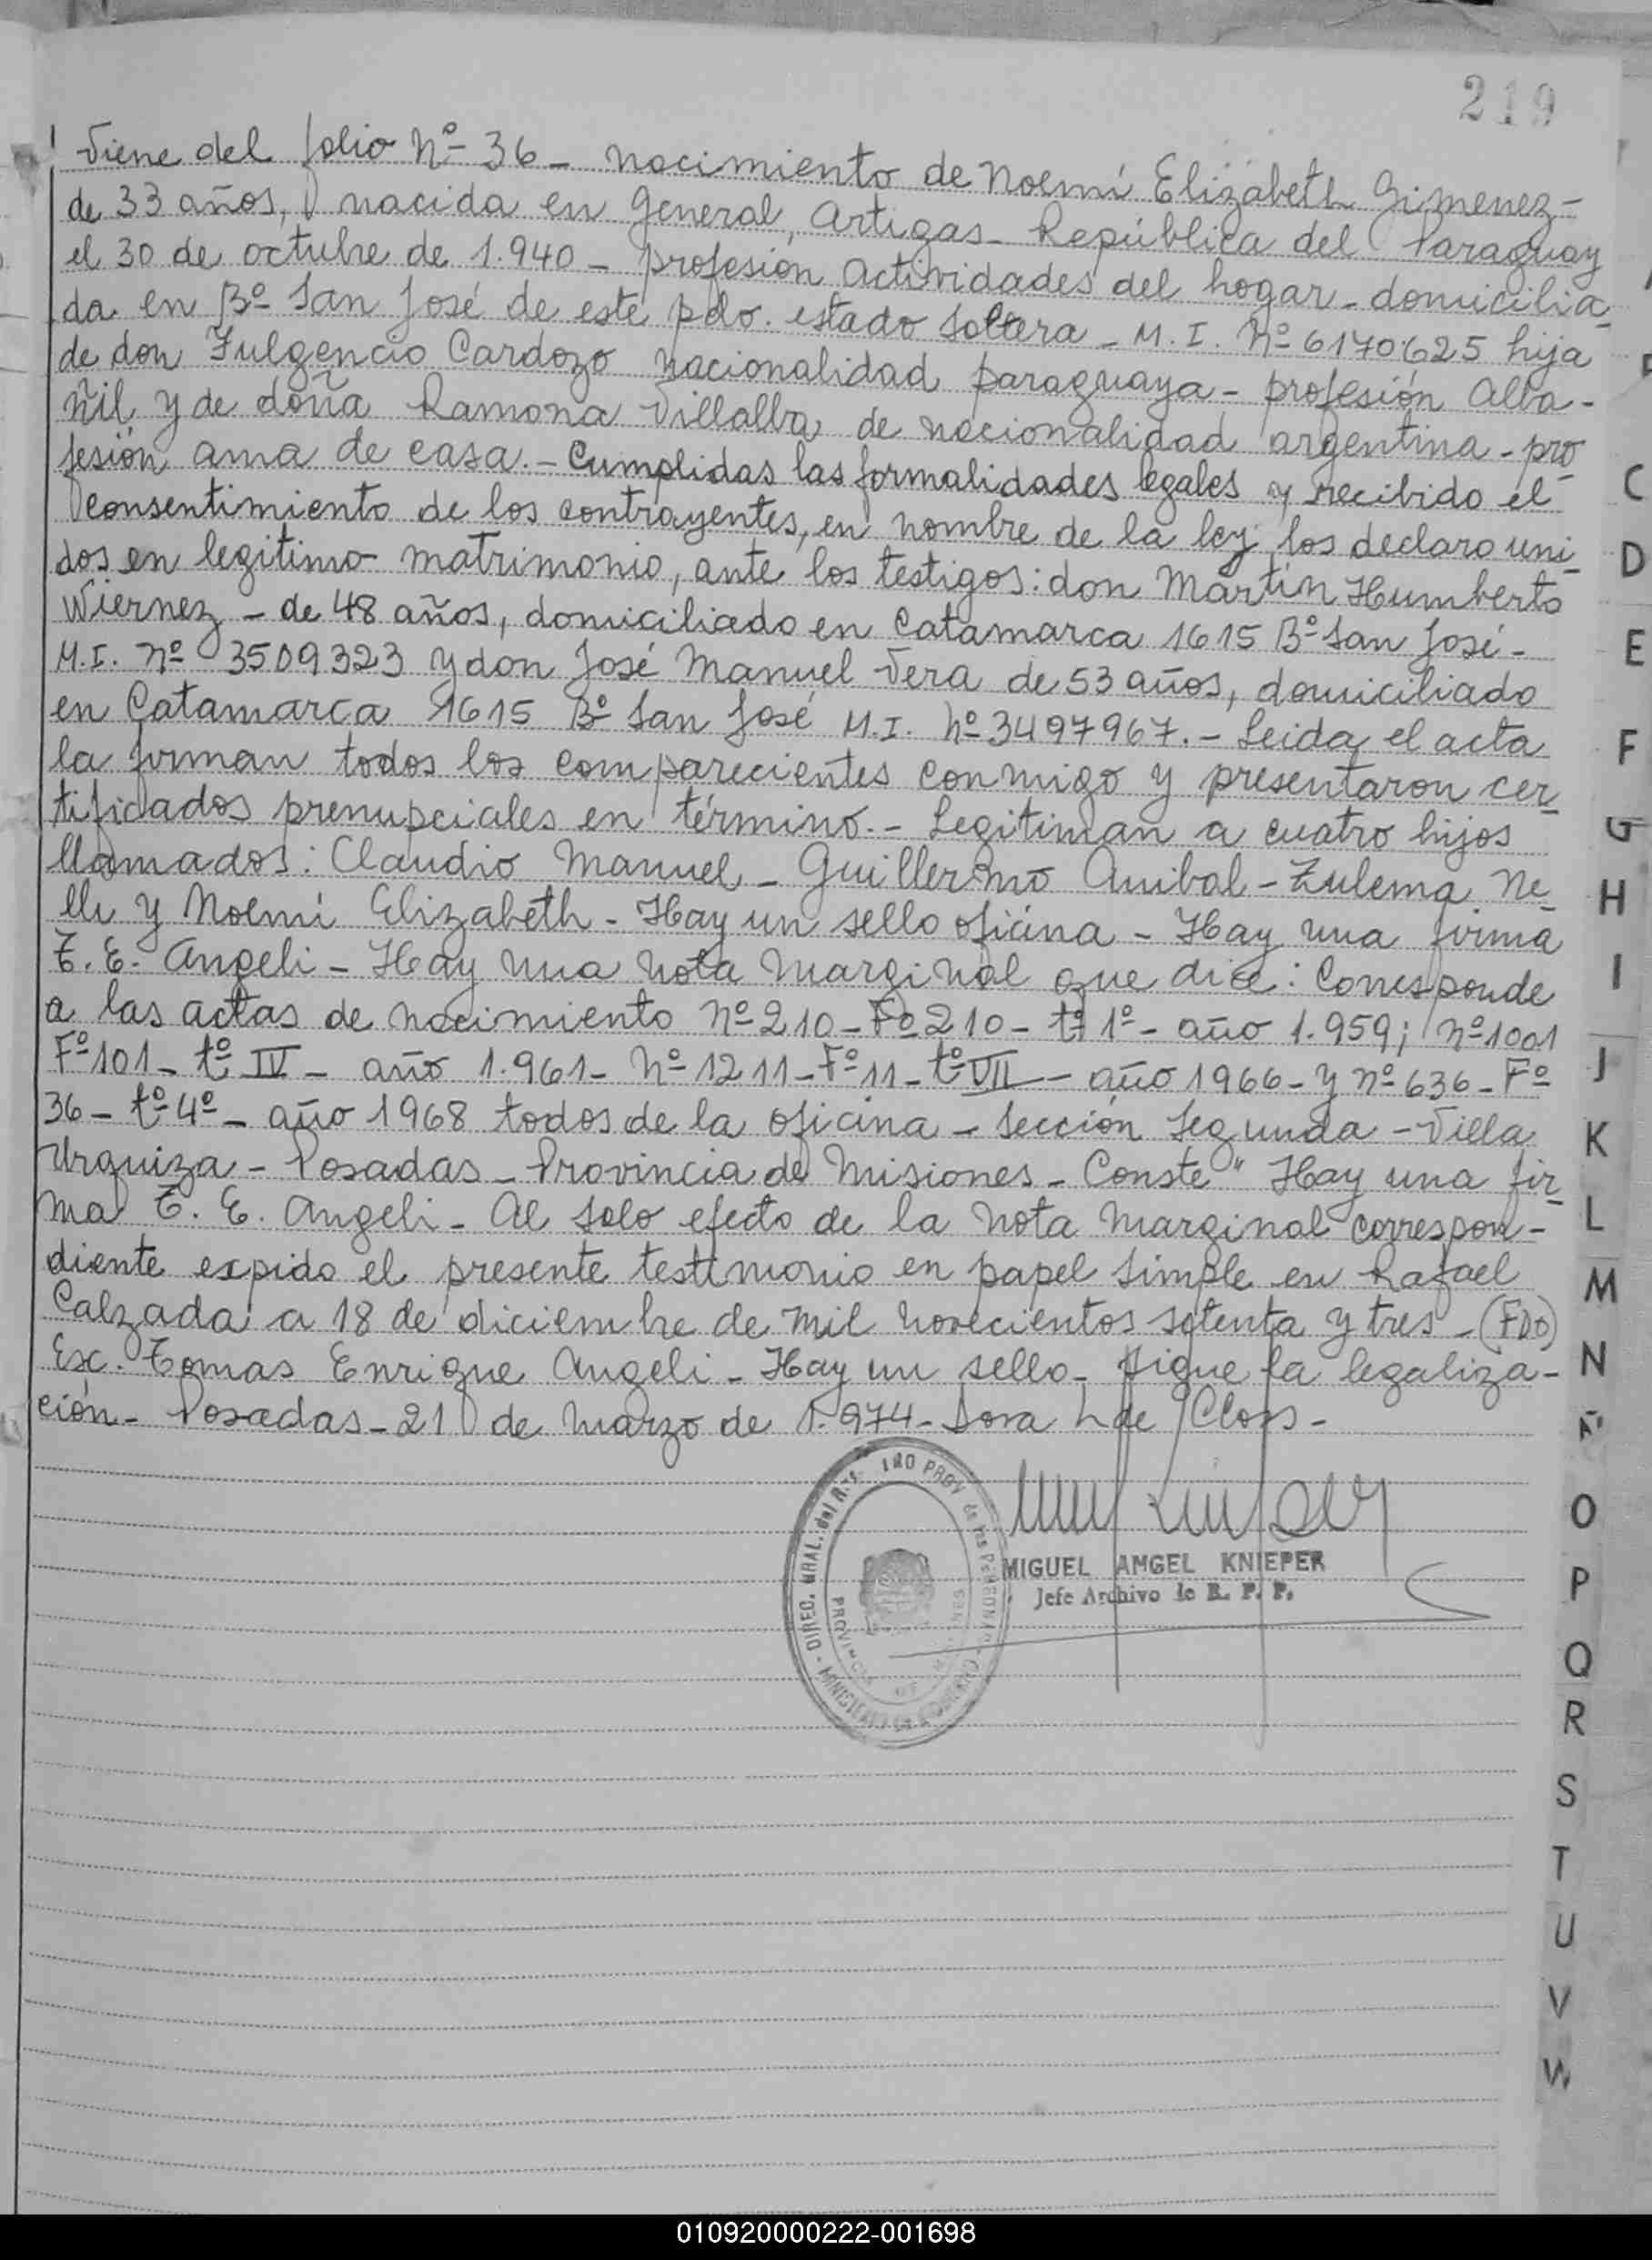 219
Viene del folio Nº 36 - nacimiento de Noemí Elizabeth Gimenez -
de 33 años, nacida en General, Artigas - República del Paraguay
el 30 de octubre de 1.940 - profesión actividades del hogar - domicilia
da en Bº San José de este pdo. estado soltera - M.I. Nº 6170625 hija
de don Fulgencio Cardozo nacionalidad paraguaya - profesión Alba-
ñil y de doña Ramona Villalba de nacionalidad argentina - pro
fesión ama de casa. - Cumplidas las formalidades legales y recibido el
consentimiento de los contrayentes, en nombre de la ley los declaro uni-
dos en legitimo matrimonio, ante los testigos: don Martín Humberto
Wiernez - de 48 años, domiciliado en Catamarca 1615 Bº San José -
M.I. Nº 3509323 y don José Manuel Vera de 53 años, domiciliado
en Catamarca 1615 Bº San José M.I. Nº 3497967. - Leida el acta
la firman todos los comparecientes conmigo y presentaron cer-
tificados prenupciales en término. - Legitiman a cuatro hijos
llamados: Claudio Manuel - Guillermo Anibal - Zulema Ne-
lli y Noemí Elizabeth - Hay un sello oficina - Hay una firma
T. E. Angeli - Hay una nota marginal que dice: Corresponde
a las actas de nacimiento Nº 210 - Fº 210 - tº 1º - año 1.959; Nº 1001
Fº 101 - tº IV - año 1.961 - Nº 1211 - Fº 11 - tº VII - año 1966 - y Nº 636 - Fº
36 - tº 4º - año 1968 todos de la oficina - Sección Segunda - Villa
Urquiza - Posadas - Provincia de Misiones - Conste" Hay una fir-
ma T. E. Angeli - Al solo efecto de la nota marginal correspon-
diente expido el presente testimonio en papel simple en Rafael
Calzada a 18 de diciembre de mil novecientos setenta y tres - (FDO)
Esc. Tomas Enrique Angeli - Hay un sello - sigue la legaliza-
ción - Posadas - 21 de marzo de 1.974 - Dora L de Closs -
MIGUEL ANGEL KNIEPER
Jefe Archivo de R. P. P.
C
D
E
F
G
H
I
J
K
L
M
N
Ñ
O
P
Q
R
S
T
U
V
W
010920000222-001698